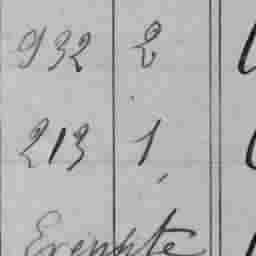 932 2
213 1